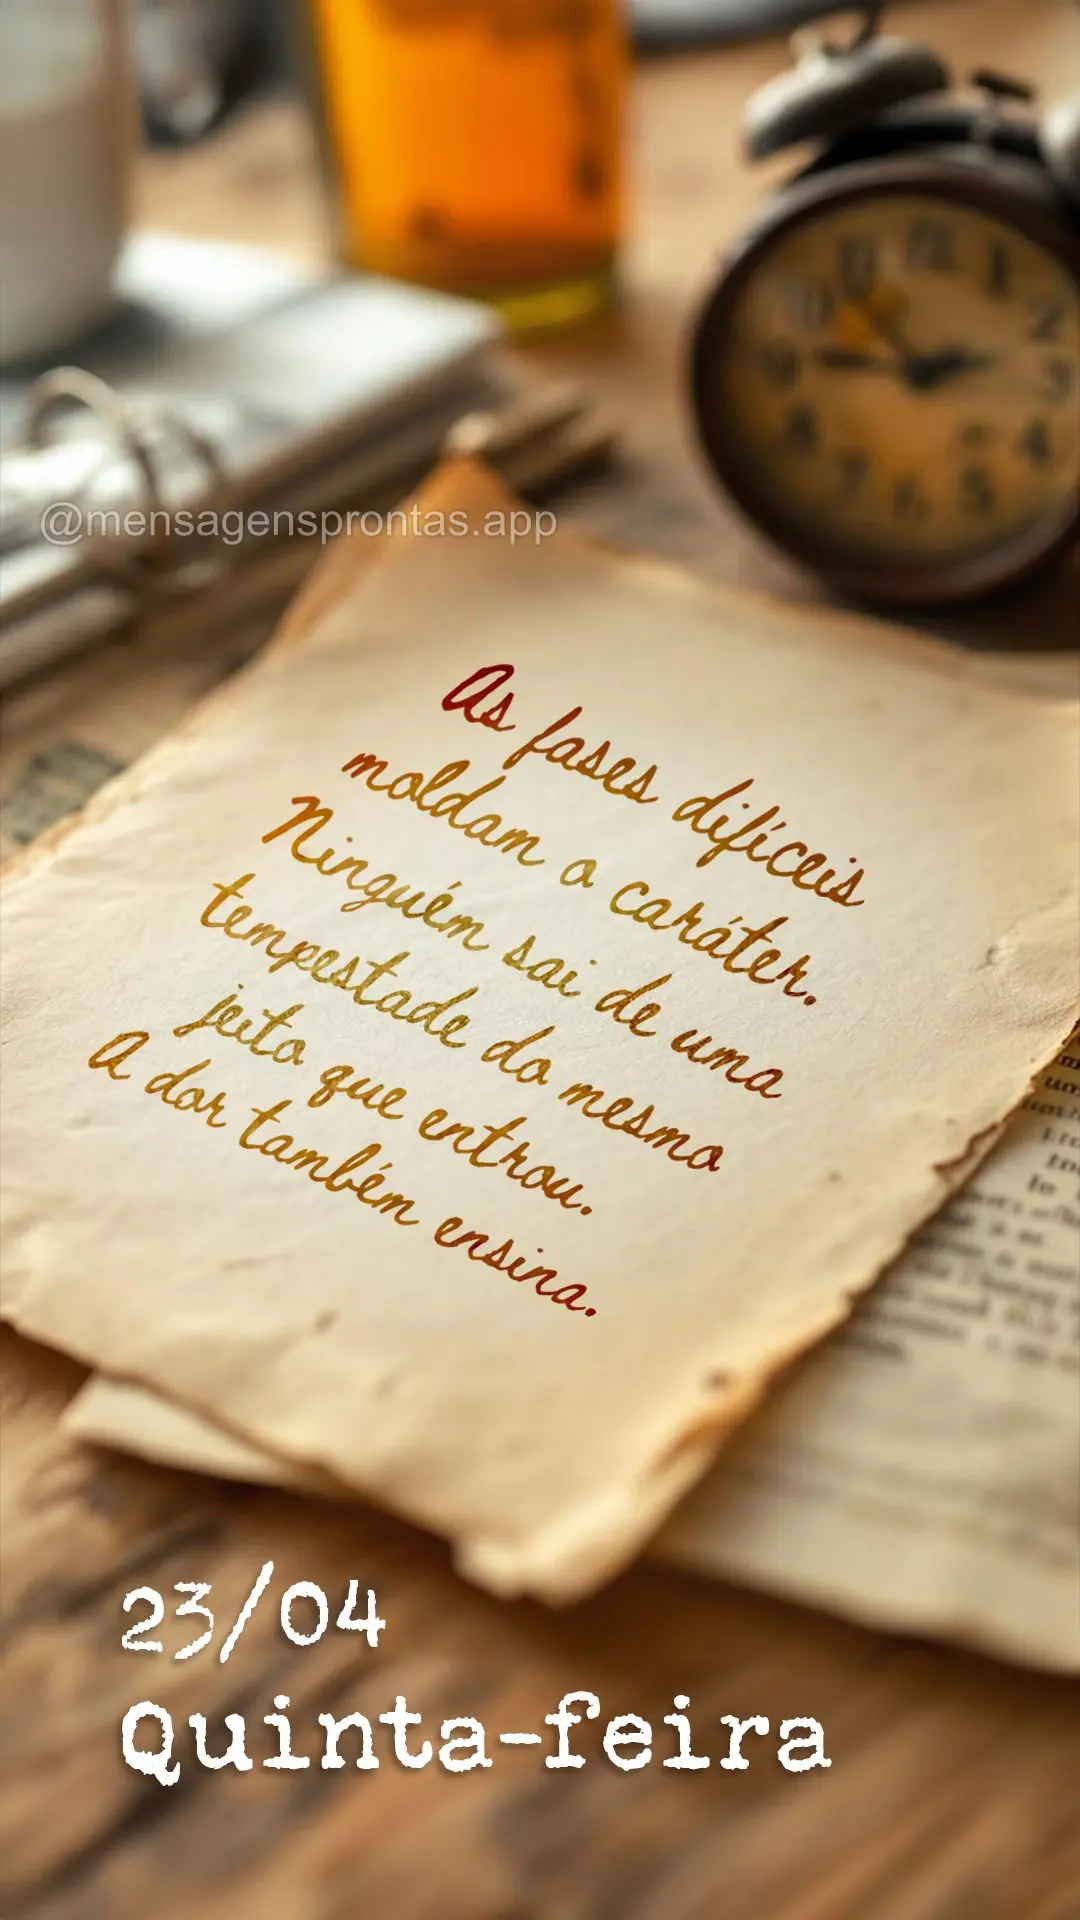 @mensagensprontas.app
As fases difíceis
moldam o caráter.
Ninguém sai de uma
tempestade do mesmo
jeito que entrou.
A dor também ensina.
23/04
Quinta-feira